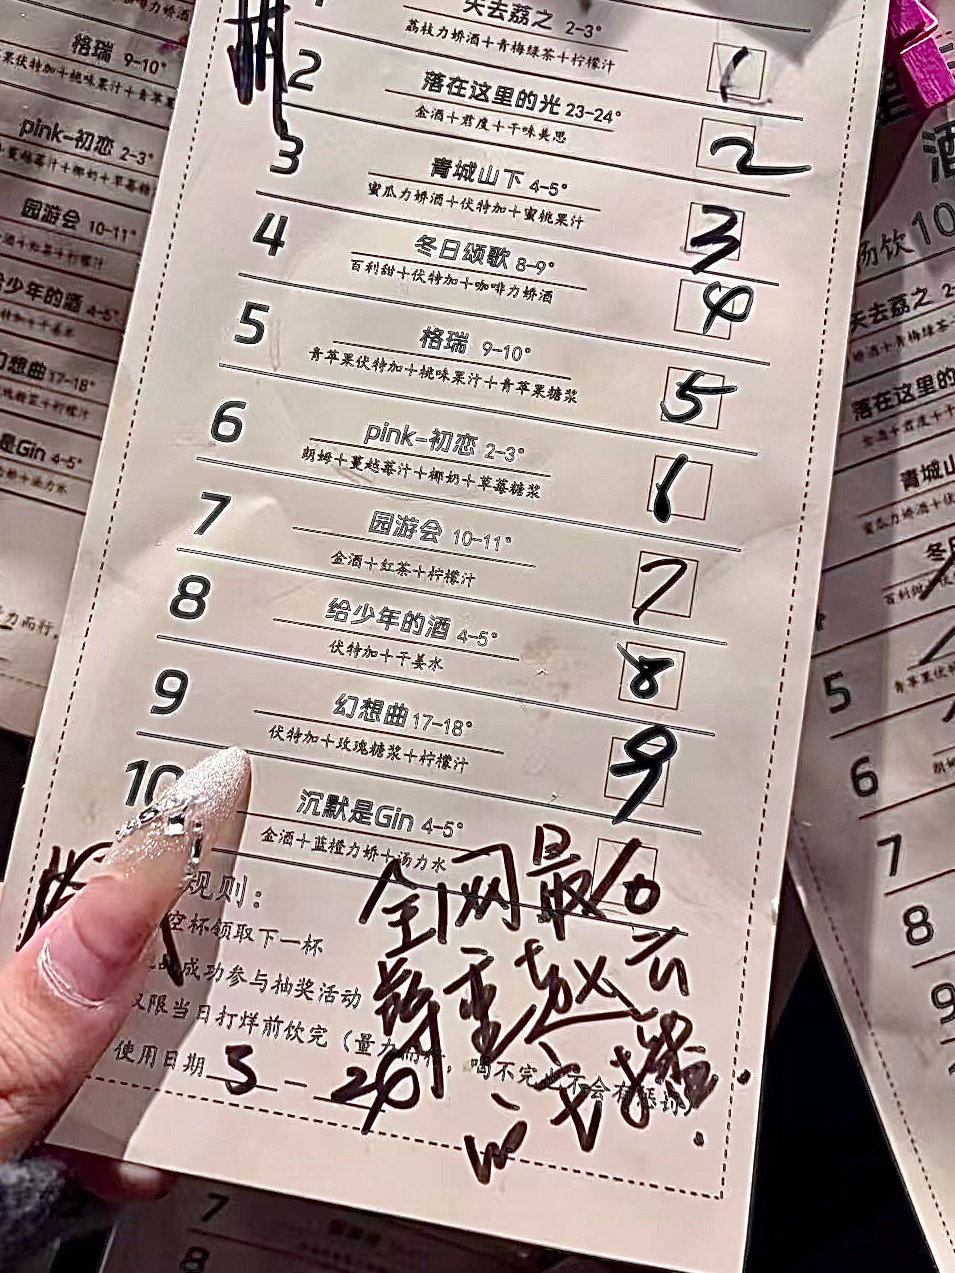 失去荔之 2-3°
荔枝力娇酒+青梅绿茶+柠檬汁
1
2
落在这里的光 23-24°
金酒+君度+干味美思
2
3
青城山下 4-5°
蜜瓜力娇酒+伏特加+蜜桃果汁
3
4
冬日颂歌 8-9°
百利甜+伏特加+咖啡力娇酒
4
5
格瑞 9-10°
青苹果伏特加+桃味果汁+青苹果糖浆
5
6
pink-初恋 2-3°
朗姆+蔓越莓汁+椰奶+草莓糖浆
7
园游会 10-11°
金酒+红茶+柠檬汁
7
8
给少年的酒 4-5°
伏特加+干姜水
8
9
幻想曲 17-18°
伏特加+玫瑰糖浆+柠檬汁
9
10
沉默是Gin 4-5°
金酒+蓝橙力娇+汤力水
10
规则：
空杯领取下一杯
成功参与抽奖活动
仅限当日打烊前饮完（量力而行，喝不完也不会有惩罚）
使用日期 3 - 24
全网最
赵云
格瑞 9-10°
果伏特加+桃味果汁+青苹果
pink-初恋 2-3°
蔓越莓汁+椰奶+草莓糖
园游会 10-11°
酒+红茶+柠檬汁
给少年的酒 4-5°
幻想曲 17-18°
是Gin 4-5°
力而行，
酒
畅饮10
失去荔之 2
落在这里的
青城山
冬日
5
6
7
8
9
7
8